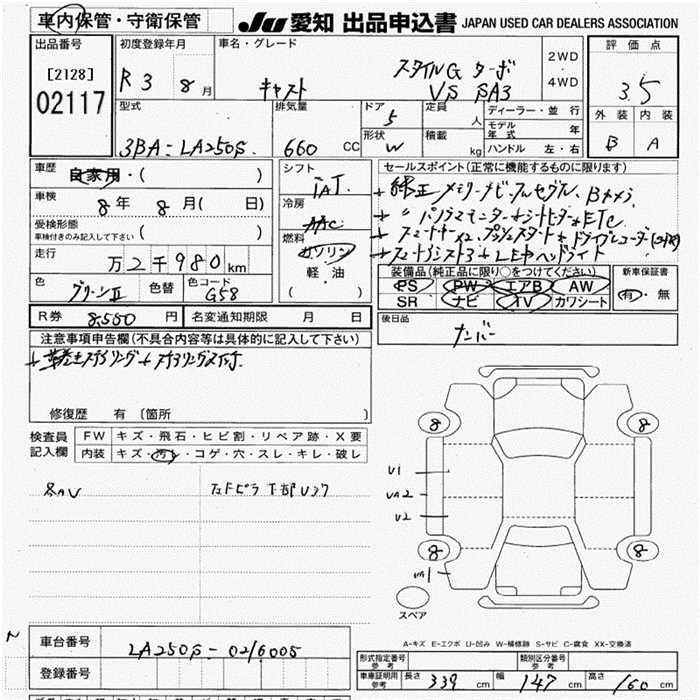 車内保管・守衛保管 JU 愛知 出品申込書 JAPAN USED CAR DEALERS ASSOCIATION
出品番号 初度登録年月 車名・グレード 評価点
[2128] スタイルG ターボ 2WD
02117 R3 8月 キャスト VS SA3 4WD 3.5
型式 排気量 ドア 5 定員 人 ディーラー・並行 外装 内装
モデル年式 年
3BA-LA250S 660 CC 形状 W 積載 kg ハンドル 左・右 B A
車歴 自家用・( ) シフト セールスポイント(正常に機能するものに限ります)
車検 8年 8月( 日) IAT +純正メモリーナビ・フルセグTV,Bカメラ
冷房 AAC
受検形態 +〃パノラマモニター+シートヒーター+ETC
車検付きのみ記入して下さい ( ) 燃料 +スマートキー×2,プッシュスタート+ドライブレコーダー
走行 万2千980km ガソリン +スマートアシスト3+LEDヘッドライト
軽・油 装備品(純正品に限り○をつけてください) 新車保証書
色 グリーンⅡ 色替 色コード G58 ( ) PS PW エアB AW 有・無
SR ナビ TV カワシート
R券 8,550円 名変通知期限 月 日 後日品
ナンバー
注意事項申告欄(不具合内容等は具体的に記入して下さい)
修復歴 有(箇所 )
検査員 FW キズ・飛石・ヒビ割・リペア跡・X要
記入欄 内装 キズ・汚レ・コゲ・穴・スレ・キレ・破レ
8 8
U1
UA2
U2
8 8
スペア
A-キズ E-エクボ U-凹み W-補修跡 S-サビ C-腐食 XX-交換済
車台番号 LA250S-0216005
形式指定番号 参考 類別区分番号 参考
登録番号 車庫証明用 参考 長さ 339cm 幅 147cm 高さ 160cm